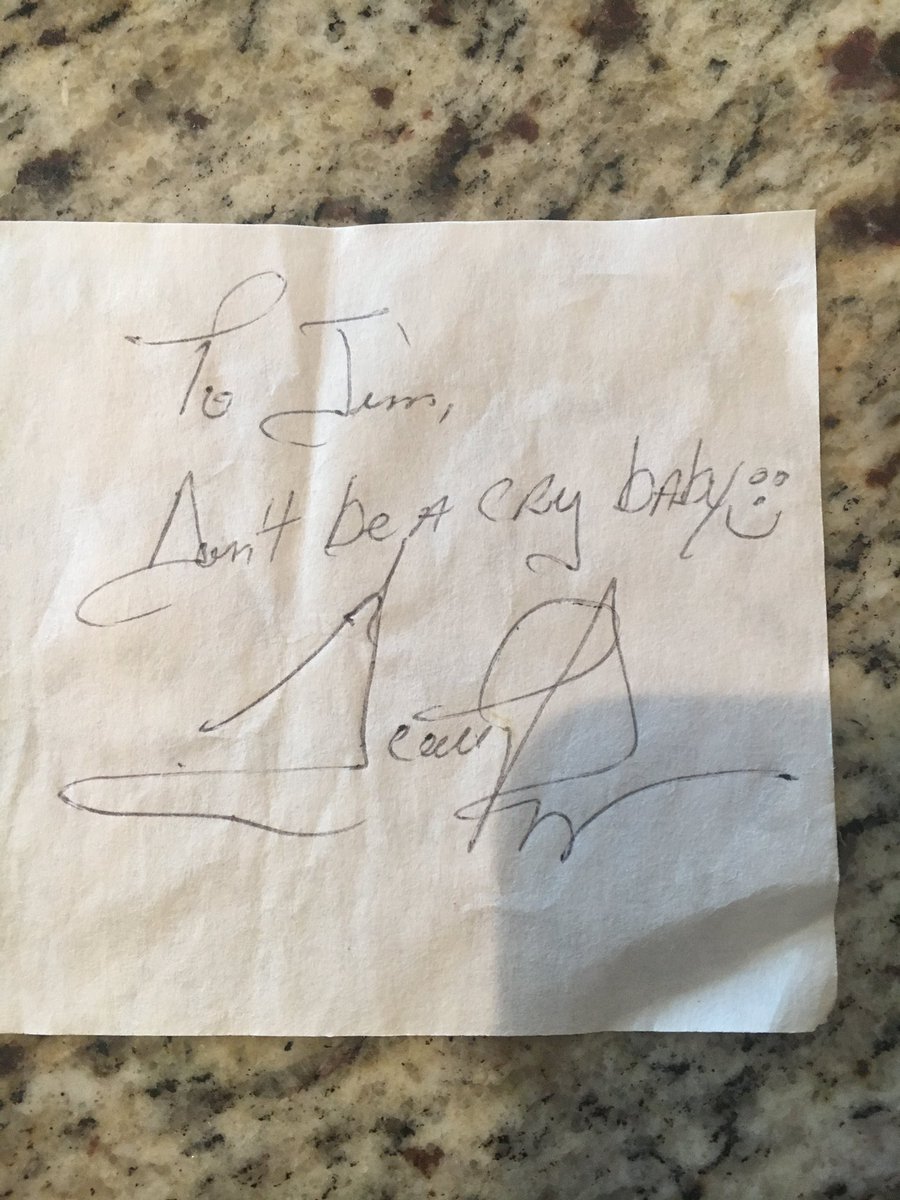 To Jim,
Don't be A CRy bAby